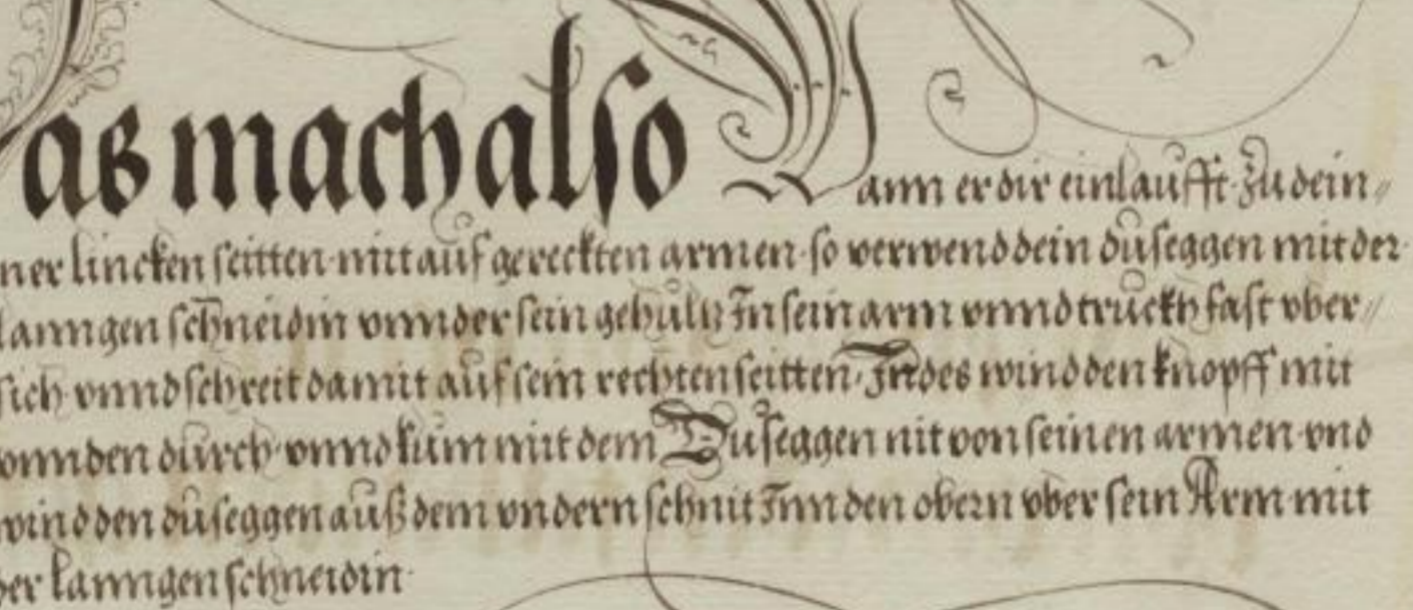 as mach also Wann er dir einlaufft zu dein//
ner lincken seitten mit auf gereckten armen so verwend dein duseggen mit der
lanngen schneidin vnnder sein gehültz In sein arm vnnd truckh fast vber//
sich vnnd schreit damit auf sein rechten seitten Indes wind den knopff mit
vnnden durch vnnd kum mit dem Duseggen nit von seinen armen vnd
wind den duseggen auß dem vndern schnit Inn den obern vber sein Arm mit
der lanngen schneidin